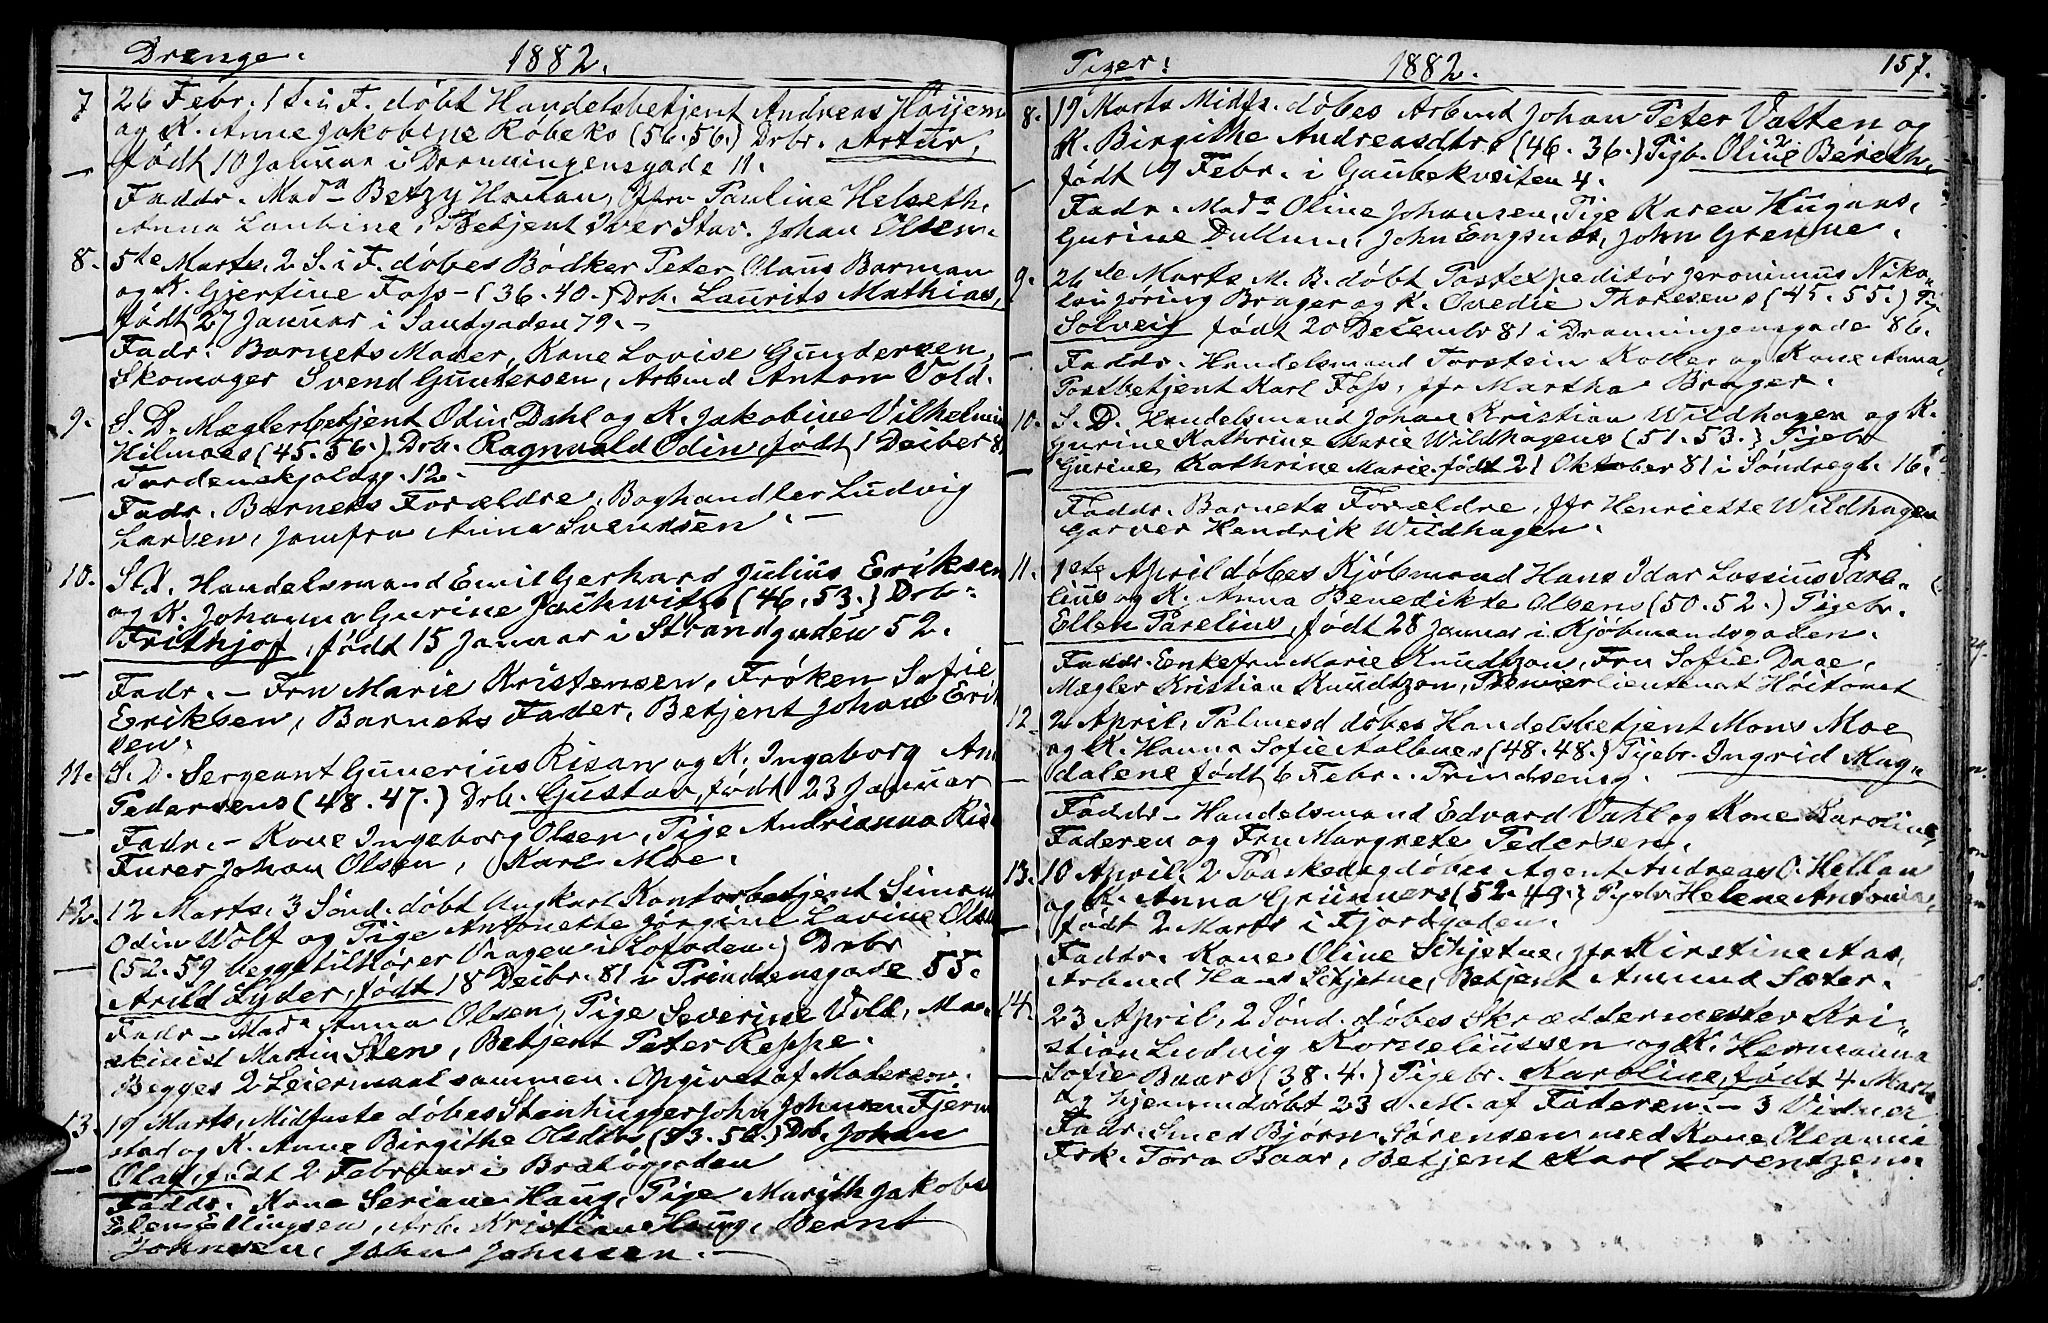 Drenge. 1882.
7 26 Febr. 1 S. i F. døbt Handelsbetjent Andreas Høijem
og K. Anne Jakobine Røbeks (56.56.) Drbr. Artur,
født 10 Januar i Dronningensgade 11.
Faddr. Mad a Betzy Homan, Jfru Pauline Helseth,
Anna Laubine, Betjent Iver Stav. Johan Olsen.
8. 5te Marts. 2 S. i F. døbes Bødker Peter Olaus Barman
og K. Gjertine Foss - (36.40.) Drb. Laurits Mathias,
født 27 Januar i Sandgaden 79. -
Fadr. Barnets Moder, Kone Lovise Gundersen,
Skomager Svend Gundersen, Arbmd Anton Vold.
9. S. D. Mæglerbetjent Odin Dahl og K. Jakobine Vilhelmine
Hilmoes (45.56.) Drb. Ragnvald Odin, født 1 Decber 81
Tordenskjoldsg. 12.
Fadr. Barnets Forældre, Boghandler Ludvig
Larsen, Jomfru Anna Svendsen. -
10. S. D. Handelsmand Emil Gerhard Julius Eriksen
og K. Johanna Gurine Jachwitz (46.53.) Drb.
Frithjof, født 15 Januar i Strandgaden 52.
Fadr. - Fru Marie Kristensen, Frøken Sofie
Eriksen, Barnets Fader, Betjent Johan Erik
sen.
11. S. D. Sergeant Gunerius Risan og K. Ingeborg Ann
Pedersens (48.47.) Drb. Gustav, født 23 Januar
Fadr. - Kone Ingeborg Olsen, Pige Andrianna Ris
Furer Johan Olsen, Karl Moe.
12. 12 Marts. 3 Sønd. døbt Ungkarl Kontorbetjent Simon
Odin Wolf og Pige Antonette Jørgine Lavine Olsen
(52.59 begge tilhører Vaagen i Lofoden.) Drbr
Arild Lyder, født 18 Decbr. 81 i Prindsensgade 55.
Fadr - Mad a Anna Olsen, Pige Severine Vold, Ma-
skinist Martin Sten, Betjent Peter Reppe.
Begges 2 Leiermaal sammen. Opgivet af Moderen.
13. 19 Marts. Midfaste døbes Stenhugger John Johnsen Fjern
stad og K. Anne Birgithe Olsdtr (53.56.) Drb. Johan
Olaf, født 2 Februar i Bratørgaden
Faddr. Kone Seriane Haug, Pige Marith Jakobs
Elen Ellingsen, Arb. Kristian Haug, Bernt
Johnsen, John Johnsen. -
Piger. 1882. 157.
8. 19 Marts Midfs. døbes Arbmd Johan Peter Vatten og
K. Birgithe Andreasdtrs (46.36.) Pigb. Oline Bereth,
født 9 Febr. i Gaubekveiten 4.
Fadr. Mad a Oline Johansen, Pige Karen Hugaas,
Gurine Dullum, John Engsnes, John Grenne.
9. 26de Marts M. B. døbt Postexpeditør Jeronimus Niko-
lai Jøring Brager og K. Ovedie Thoresens (45.55.) Pg.
Solveig født 20 Decembr 81 i Dronningensgade 86.
Faddr. Handelsmand Torstein Kolker og Kone Anna,
Postbetjent Karl Foss, jfr Martha Brager.
10. S. D. Handelsmand Johan Kristian Wildhagen og K.
Gurine Kathrine Marie Wildhagens (51.53.) Pigebr
Gurine Kathrine Marie. født 21 Oktober 81 i Søndregt. 16.
Faddr. Barnets Forældre, Jfr Henriette Wildhagen
Garver Hendrik Wildhagen.
11. 1ste April døbes Kjøbmand Hans Idar Lossius Pare-
lius og K. Anna Benedikte Olsens (50.52.) Pigebr.
Ellen Parelius, født 28 Januar i Kjøbmandsgaden.
Faddr. Enkefru Marie Knudtzon, Fru Sofie Daae,
Mægler Kristian Knudtzon, Premierlieutenat Hoitomt
12 2 April. Palmesd døbes Handelsbetjent Mons Moe
og K. Hanna Sofie Aalbues (48.48.) Pigebr. Ingrid Mag-
dalene født 6 Febr. Prindsensg.
Faddr - Handelsmand Edvard Vahl og Kone Karoline,
Faderen og Fru Margrete Pedersen.
13. 10 April. 2 Paaskedag døbes Agent Andreas O. Hellan
og K. Anna Grünners (52.49.) Pigebr. Helene Antonie,
født 2 Marts i Fjordgaden.
Faddr. Kone Oline Schjetne, Jfr Kirstine Aas,
Arbmd Hans Schjetne, Betjent Amund Sæter.
14. 23 April. 2 Sønd. døbes Skræddermester Kri-
stian Ludvig Korneliussen og K. Hermanna
Sofie Baars (38.4.) Pigebr. Karoline, født 4 Marts
og hjemmedøbt 23 d. M. af Faderen. - 3 Vidner
Fadr. Smed Bjørn Sørensen med Kone Oleanna
Frk. Tora Baar, Betjent Karl Lorentzen.